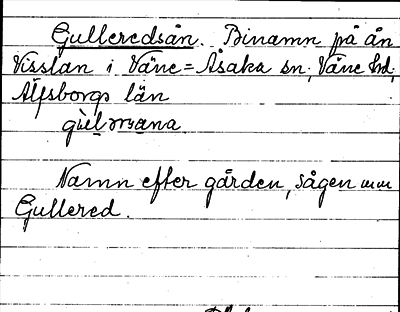 Gulleredsån. Binamn på ån
Visslan i Väne=Åsaka sn, Väne hd,
Älfsborgs län

Namn efter gården, sågen mm
Gullered.